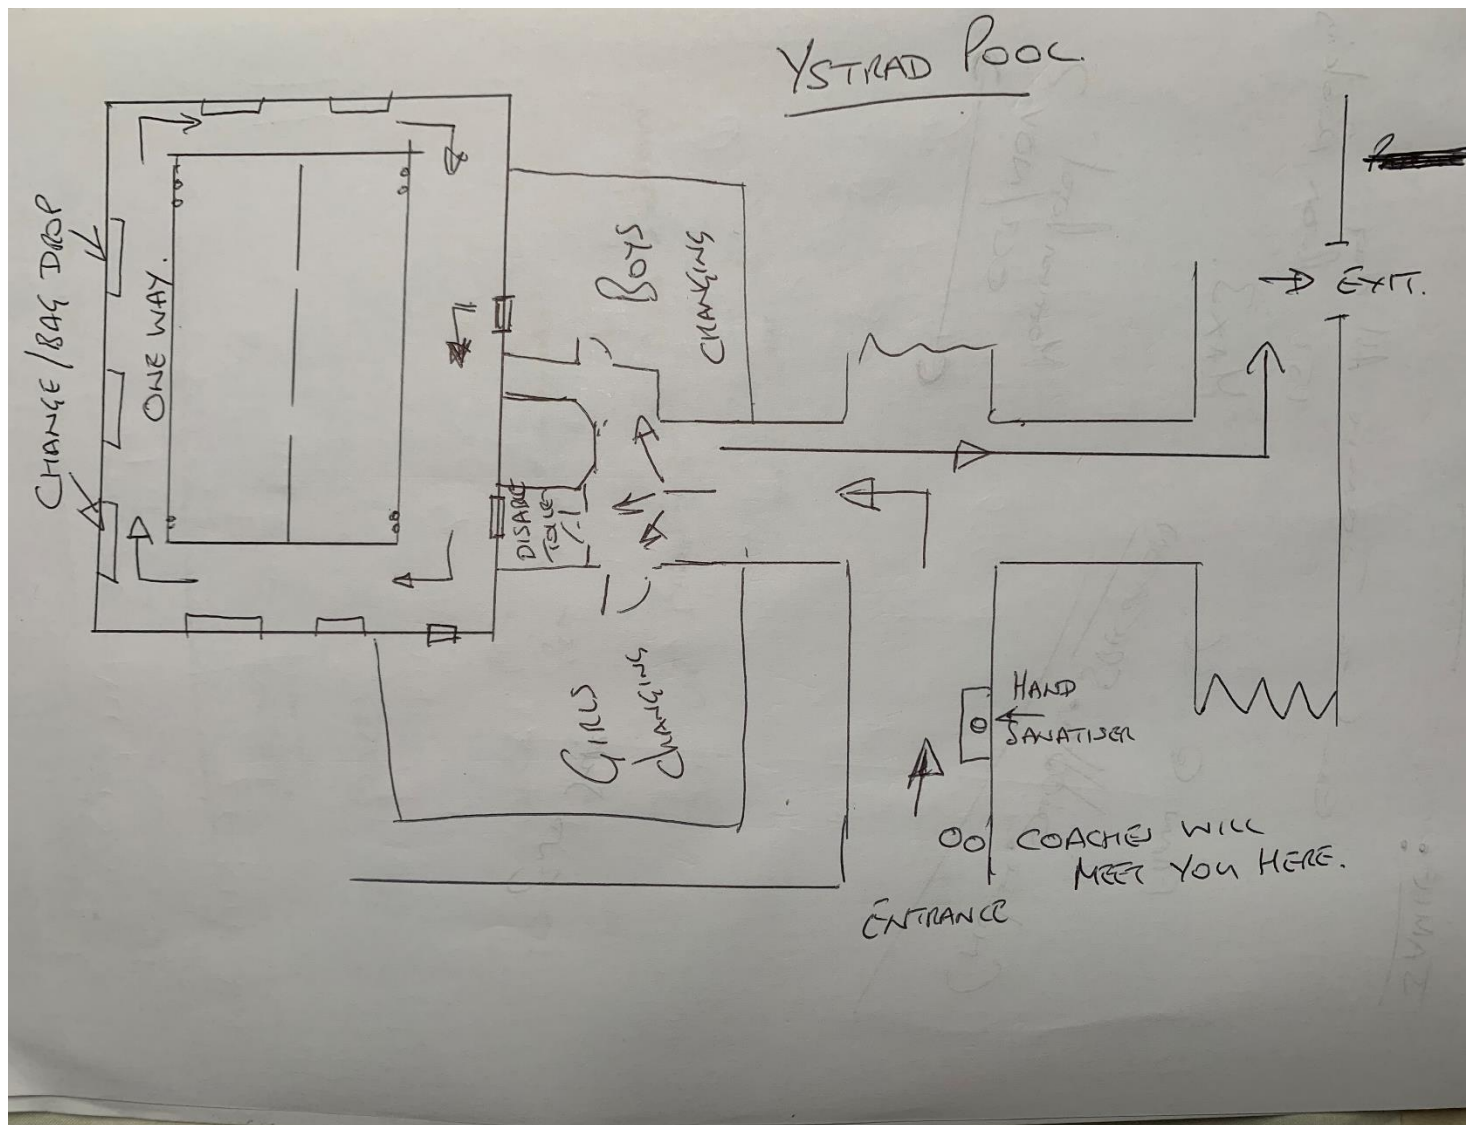 YSTRAD POOL.
CHANGE/BAG DROP
ONE WAY.
BOYS
CHANGING
EXIT.
DISABLE
TOILET
GIRLS
CHANGING
HAND
SANATISER
COACHES WILL
MEET YOU HERE.
ENTRANCE